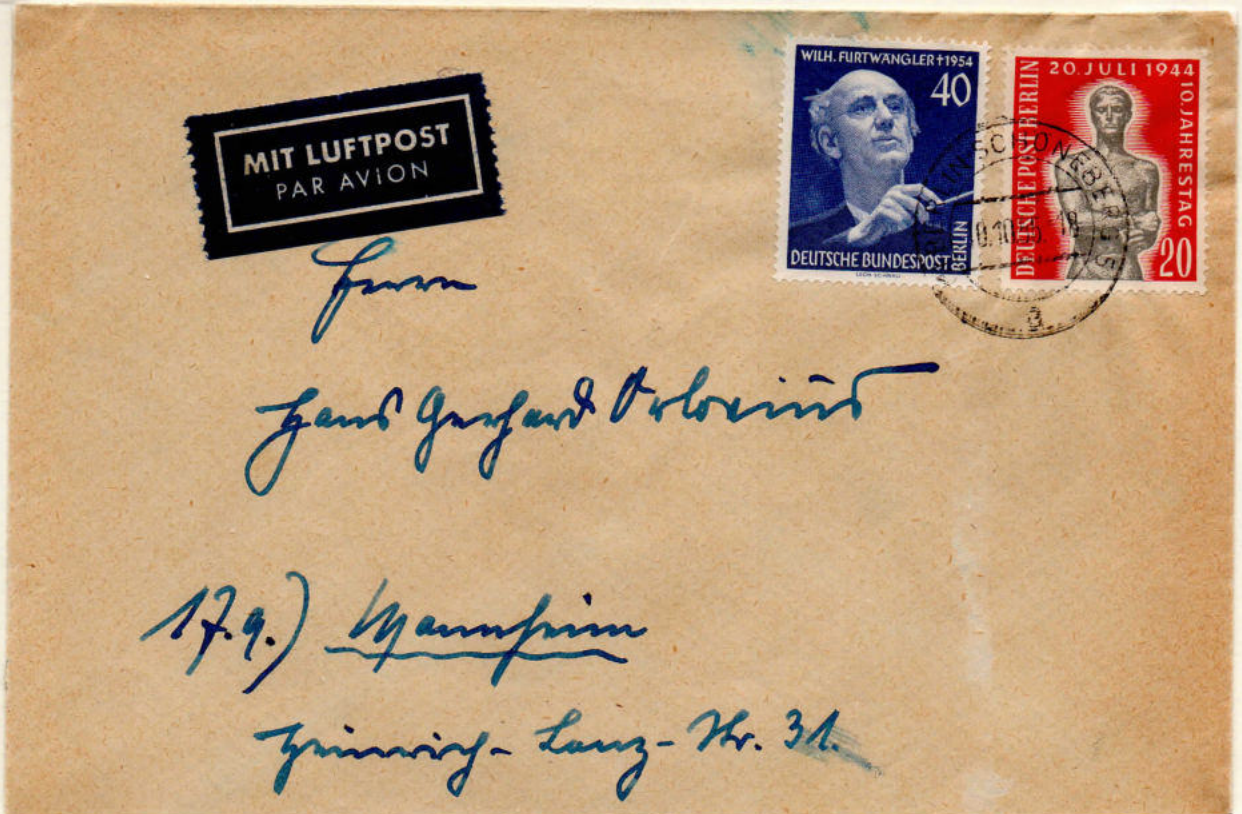 MIT LUFTPOST
PAR AVION
WILH. FURTWÄNGLER † 1954
40
DEUTSCHE BUNDESPOST
BERLIN
20. JULI 1944
10. JAHRESTAG
DEUTSCHE POST BERLIN
20
BERLIN-SCHÖNEBERG 5
10.55. 18
a
Herrn
Hans Gerhard Orlovius
17.a.) Mannheim
Heinrich-Lanz-Str. 31.